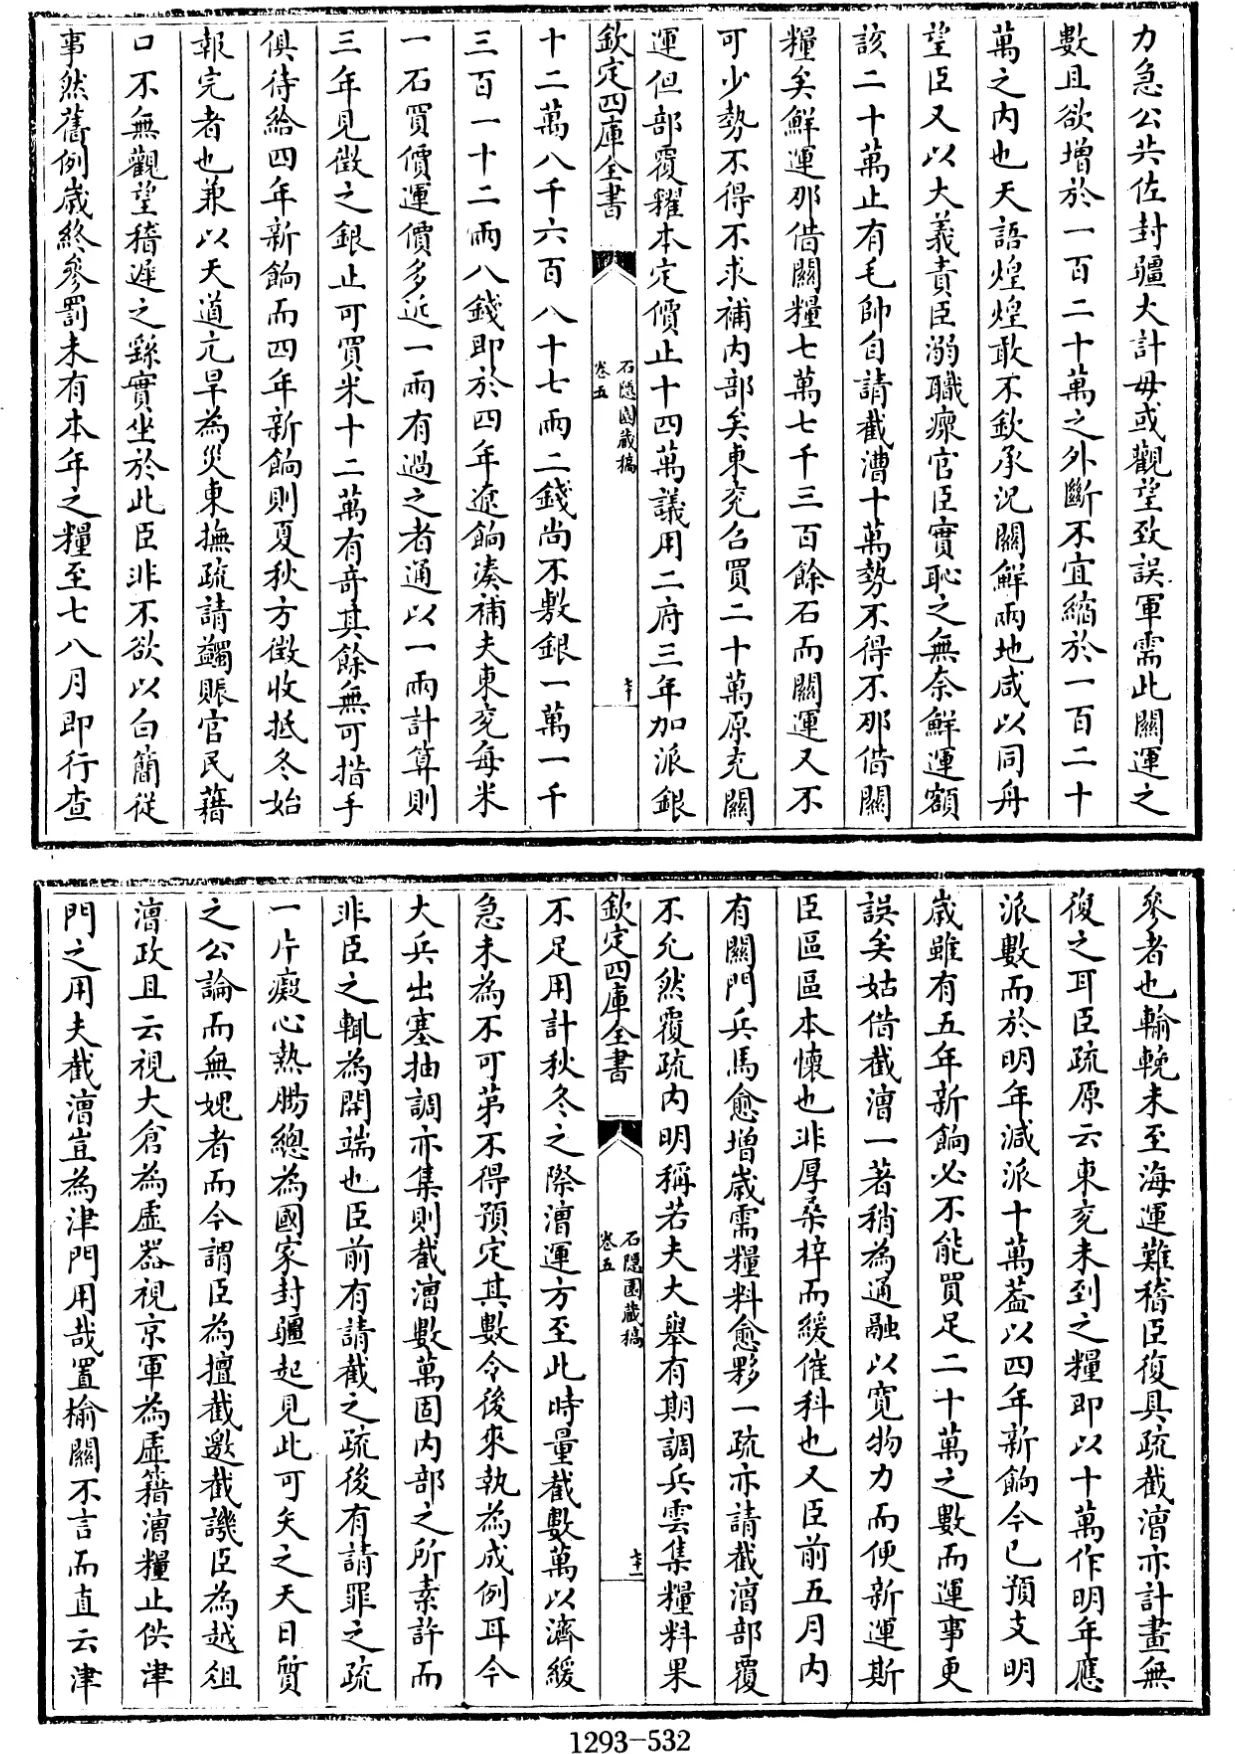 力急公共佐封疆大計毋或觀望致誤軍需此關運之
數且欲增於一百二十萬之外斷不宜縮於一百二十
萬之内也天語煌煌敢不欽承況關鮮兩地咸以同舟
望臣又以大義責臣溺職瘝官臣實恥之無奈鮮運額
該二十萬止有毛帥自請截漕十萬勢不得不那借關
糧矣鮮運那借關糧七萬七千三百餘石而關運又不
可少勢不得不求補内部矣東兖召買二十萬原充關
運但部覆糴本定價止十四萬議用二府三年加派銀
欽定四庫全書
石隱園藏稿
卷五
七十
十二萬八千六百八十七兩二錢尚不敷銀一萬一千
三百一十二兩八錢即於四年遼餉湊補夫東兖每米
一石買價運價多近一兩有過之者通以一兩計算則
三年見徵之銀止可買米十二萬有奇其餘無可措手
俱待給四年新餉而四年新餉則夏秋方徵收抵冬始
報完者也兼以天道亢旱為災東撫疏請蠲賑官民藉
口不無觀望稽遲之繇實坐於此臣非不欲以白簡從
事然舊例歲終參罰未有本年之糧至七八月即行查
參者也輸輓未至海運難稽臣復具疏截漕亦計畫無
復之耳臣疏原云東兖未到之糧即以十萬作明年應
派數而於明年減派十萬葢以四年新餉今已預支明
歲雖有五年新餉必不能買足二十萬之數而運事更
誤矣姑借截漕一著稍為通融以寛物力而便新運斯
臣區區本懷也非厚桑梓而緩催科也又臣前五月内
有關門兵馬愈增歲需糧料愈夥一疏亦請截漕部覆
不允然覆疏内明稱若夫大舉有期調兵雲集糧料果
欽定四庫全書
石隱園藏稿
卷五
七十一
不足用計秋冬之際漕運方至此時量截數萬以濟緩
急未為不可第不得預定其數令後來執為成例耳今
大兵出塞抽調亦集則截漕數萬固内部之所素許而
非臣之輒為開端也臣前有請截之疏後有請罪之疏
一片癡心熱腸總為國家封疆起見此可矢之天日質
之公論而無媿者而今謂臣為擅截邀截譏臣為越俎
漕政且云視大倉為虛器視京軍為虛籍漕糧止供津
門之用夫截漕豈為津門用哉置榆關不言而直云津
1293-532